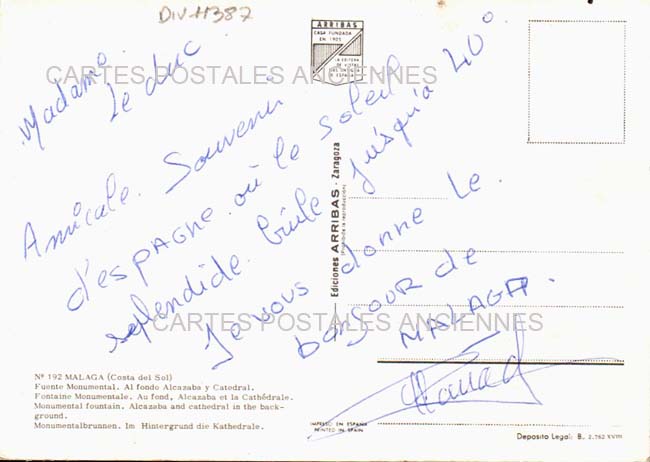 DIV-H387
ARRIBAS
CASA FUNDADA
EN 1905
LA EDITORA
DE VISTAS
MAS ANTIGUA
DE ESPAÑA
CARTES POSTALES ANCIENNES
Madame
Le duc
Amicale. Souvenir
d'ESPAGNE où le soleil
splendide. brûle jusqu'a 40°
Je vous donne Le
bonjour de
MALAGA.
Ediciones ARRIBAS - Zaragoza
(Prohibida la reproducción)
CARTES POSTALES ANCIENNES
Nº 192 MALAGA (Costa del Sol)
Fuente Monumental. Al fondo Alcazaba y Catedral.
Fontaine Monumentale. Au fond, Alcazaba et la Cathédrale.
Monumental fountain. Alcazaba and cathedral in the back-
ground.
Monumentalbrunnen. Im Hintergrund die Kathedrale.
IMPRESO EN ESPAÑA
PRINTED IN SPAIN
Deposito Legal: B. 2.762 XVIII